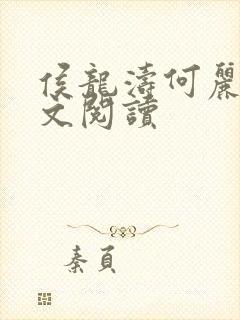 侯龍濤何麗
文閱讀
秦頁